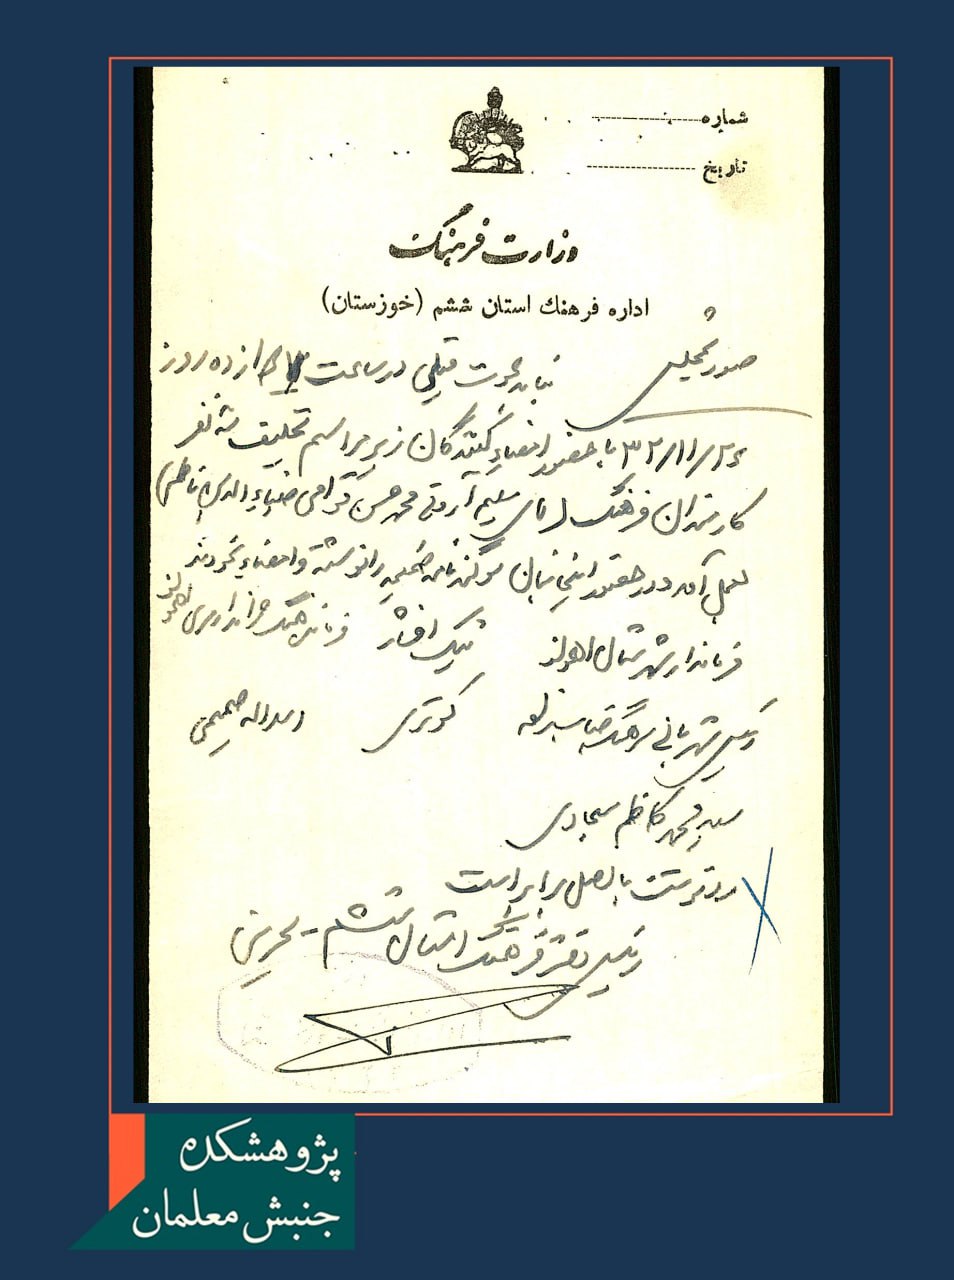 شماره
تاریخ
وزارت فرهنگ
اداره فرهنگ استان ششم (خوزستان)
صورتمجلس
بنا به دعوت قبلی در ساعت ده روز
۳۲/۱۱/۲۶ با حضور امضاء کنندگان زیر مراسم تحلیف سه نفر
کارمندان فرهنگ (آقای سلیم محمد حسن قوامی ضیاءالدین ناظم)
بعمل آمد و در حضور سوگندنامه ضمیمه را نوشته و امضاء نمودند
فرماندار شهرستان اهواز نیک افشار
رئیس شهربانی سرهنگ کوثری اسداله صمیمی
سید محمد کاظم سجادی
رونوشت با اصل برابر است
رئیس دفتر فرهنگ استان ششم -
پژوهشکده
جنبش معلمان